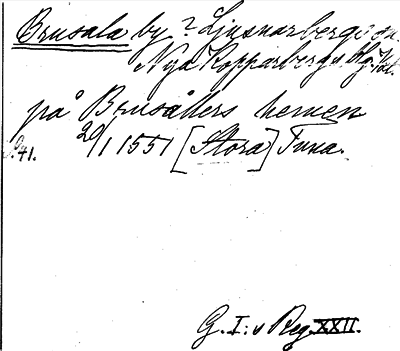 Brusala by? Ljusnarbergs sn.
Nya Kopparbergs blg. Vstm.
på Brusåkers hemen
S. 41. 20/1 1551 [Stora] Tuna.
G. I:s Reg. XXII.